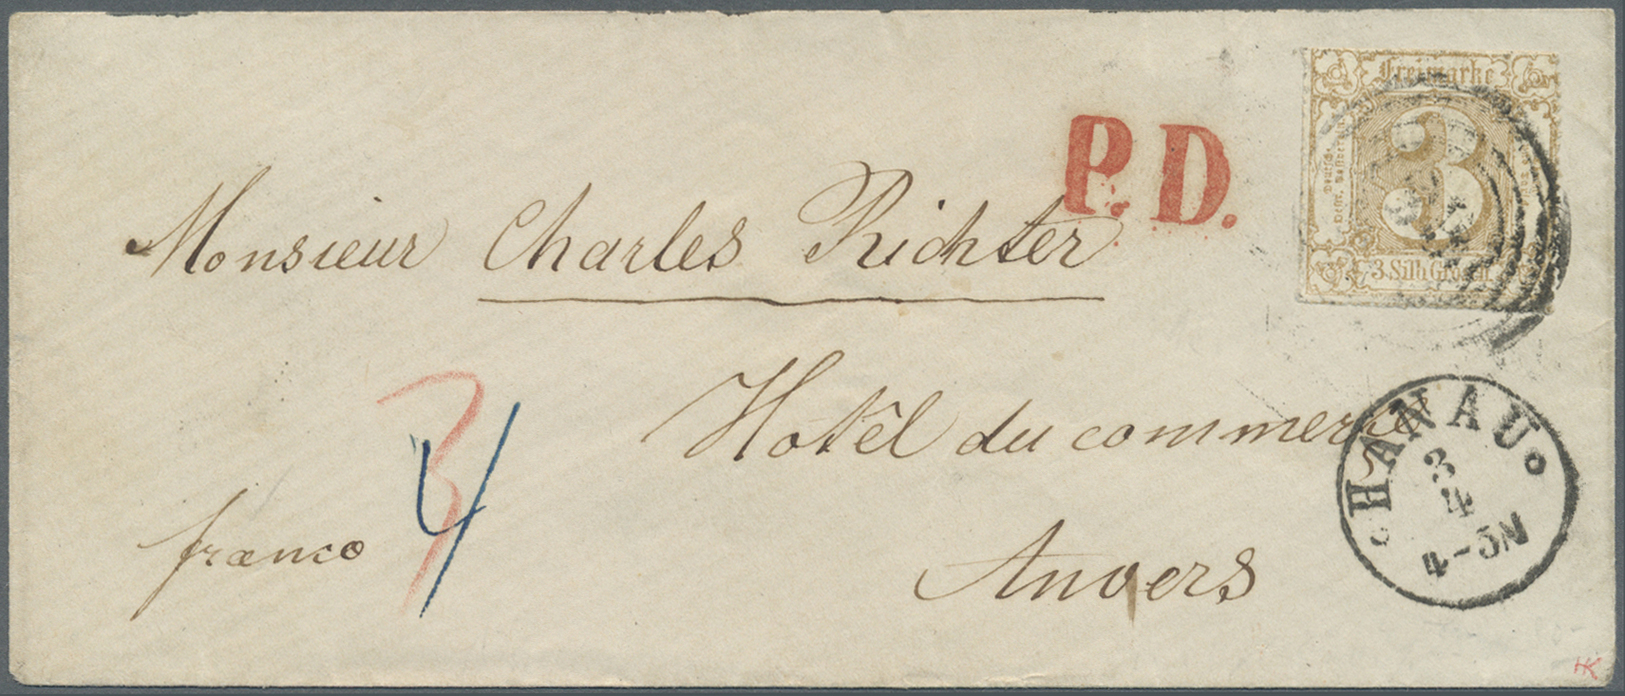 Freimarke
3
3. Silb. Grosch.
P.D.
Monsieur Charles Richter
Hotel du commerce
Anvers
franco
3
4
HANAU
3
4
4-5N
HK